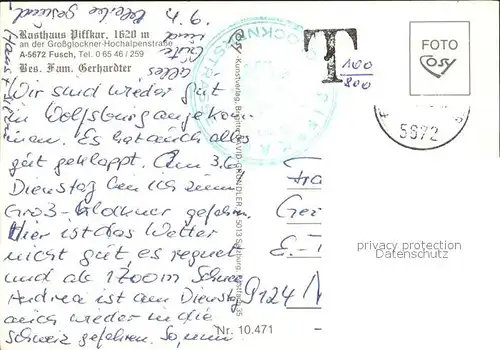 Rasthaus Piffkar, 1620 m
an der Großglockner-Hochalpenstraße
A-5672 Fusch, Tel. 0 65 46 / 259
Bes. Fam. Gerhardter
Wir sind wieder gut
in Wolfsburg angekom-
men. Es hat auch alles
gut geklappt. Am 3.6.
Dienstag bin ich zum
Groß-Glockner gefahren.
Hier ist das Wetter
nicht gut, es regnet
und ab 1700m Schnee
Andrea ist am Dienstag
auch wieder in die
Schweiz gefahren. So, nun
alles
Gute
und
Cosy-Kunstverlag, Bruno
GRÜNDLER, A-5013 Salzburg
Nr. 10.471
T
100
800
FOTO
COSY
5672
PIFFKAR
E.-
9124
privacy protection
Datenschutz